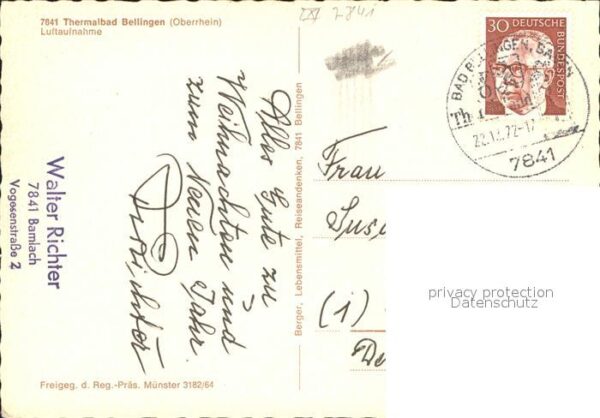 7841 Thermalbad Bellingen (Oberrhein)
Luftaufnahme
7841
30 DEUTSCHE
BUNDESPOST
BAD BELLINGEN, BA
22.12.72-1
7841
Alles Gute zu
Weihnachten und
zum Neuen Jahr.
Walter Richter
7841 Bamlach
Vogesenstraße 2
Berger, Lebensmittel, Reiseandenken, 7841 Bellingen
Frau
(1)
privacy protection
Datenschutz
Freigeg. d. Reg.-Präs. Münster 3182/64